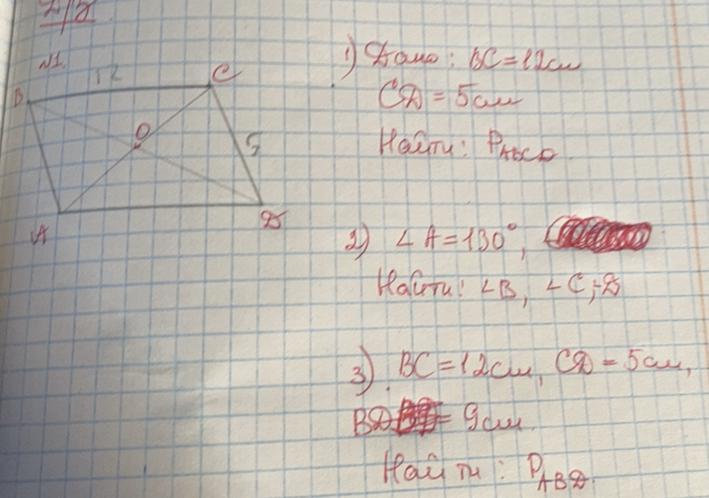 Д/з
№1.
12
B
C
O
5
A
D
1) Дано: BC = 12 см
CD = 5 см
Найти: P ABCD.
2) ∠A = 130°,
Найти: ∠B, ∠C, ∠D
3) BC = 12 см, CD = 5 см,
BD = 9 см.
Найти: P ABD.